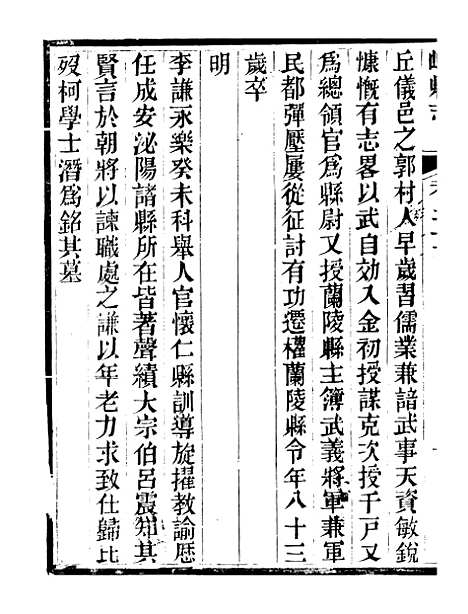 嶧縣志
丘儀邑之郭村人早歲習儒業兼諳武事天資敏銳
慷慨有志畧以武自効入金初授謀克次授千戸又
爲總領官爲縣尉又授蘭陵縣主簿武義將軍兼軍
民都彈壓屢從征討有功遷權蘭陵縣令年八十三
歲卒
明
李謙永樂癸未科舉人官懷仁縣訓導旋擢教諭歴
任成安泌陽諸縣所在皆著聲績大宗伯呂震知其
賢言於朝將以諫職處之謙以年老力求致仕歸比
歿柯學士潛爲銘其墓